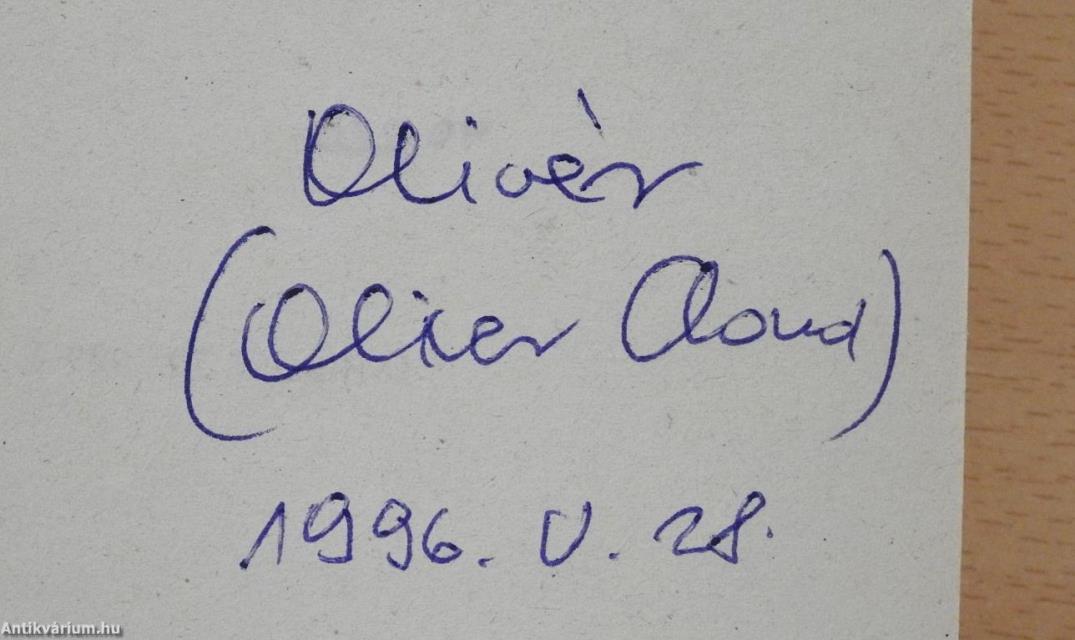 Olivér
(Oliver Cloud)
1996. V. 28.
Antikvárium.hu